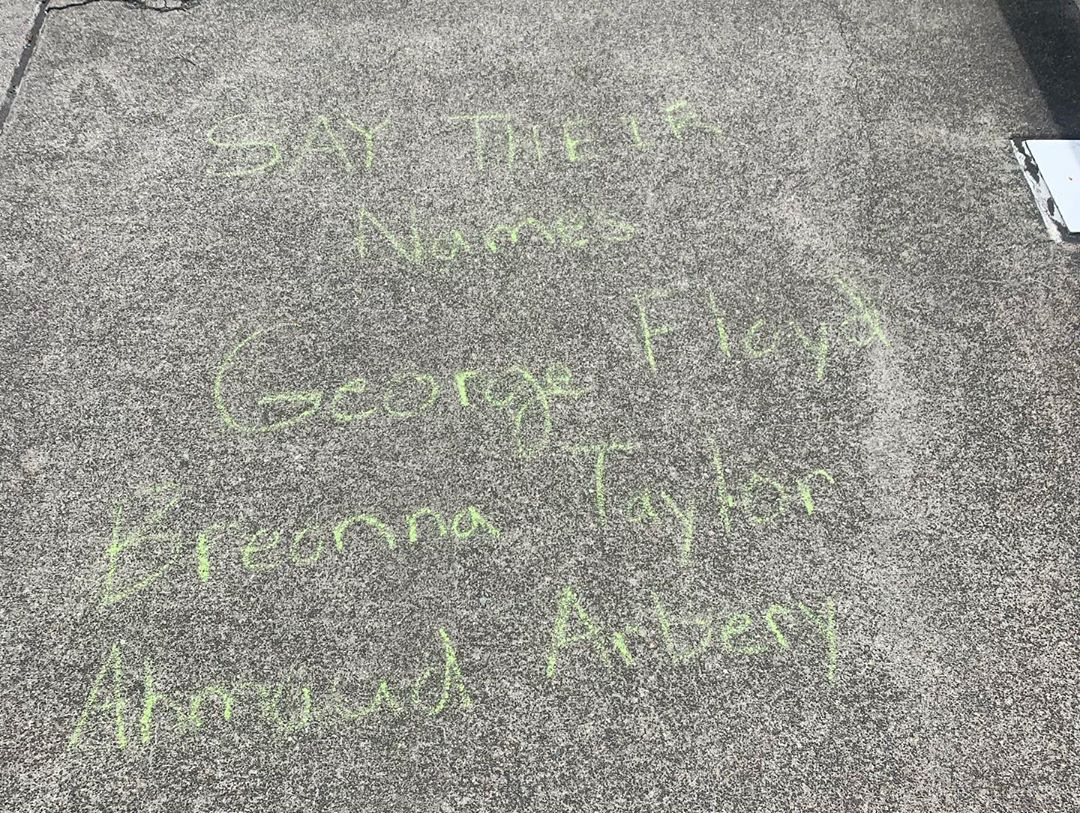 SAY THEIR
Names
George Floyd
Breonna Taylor
Ahmaud Arbery